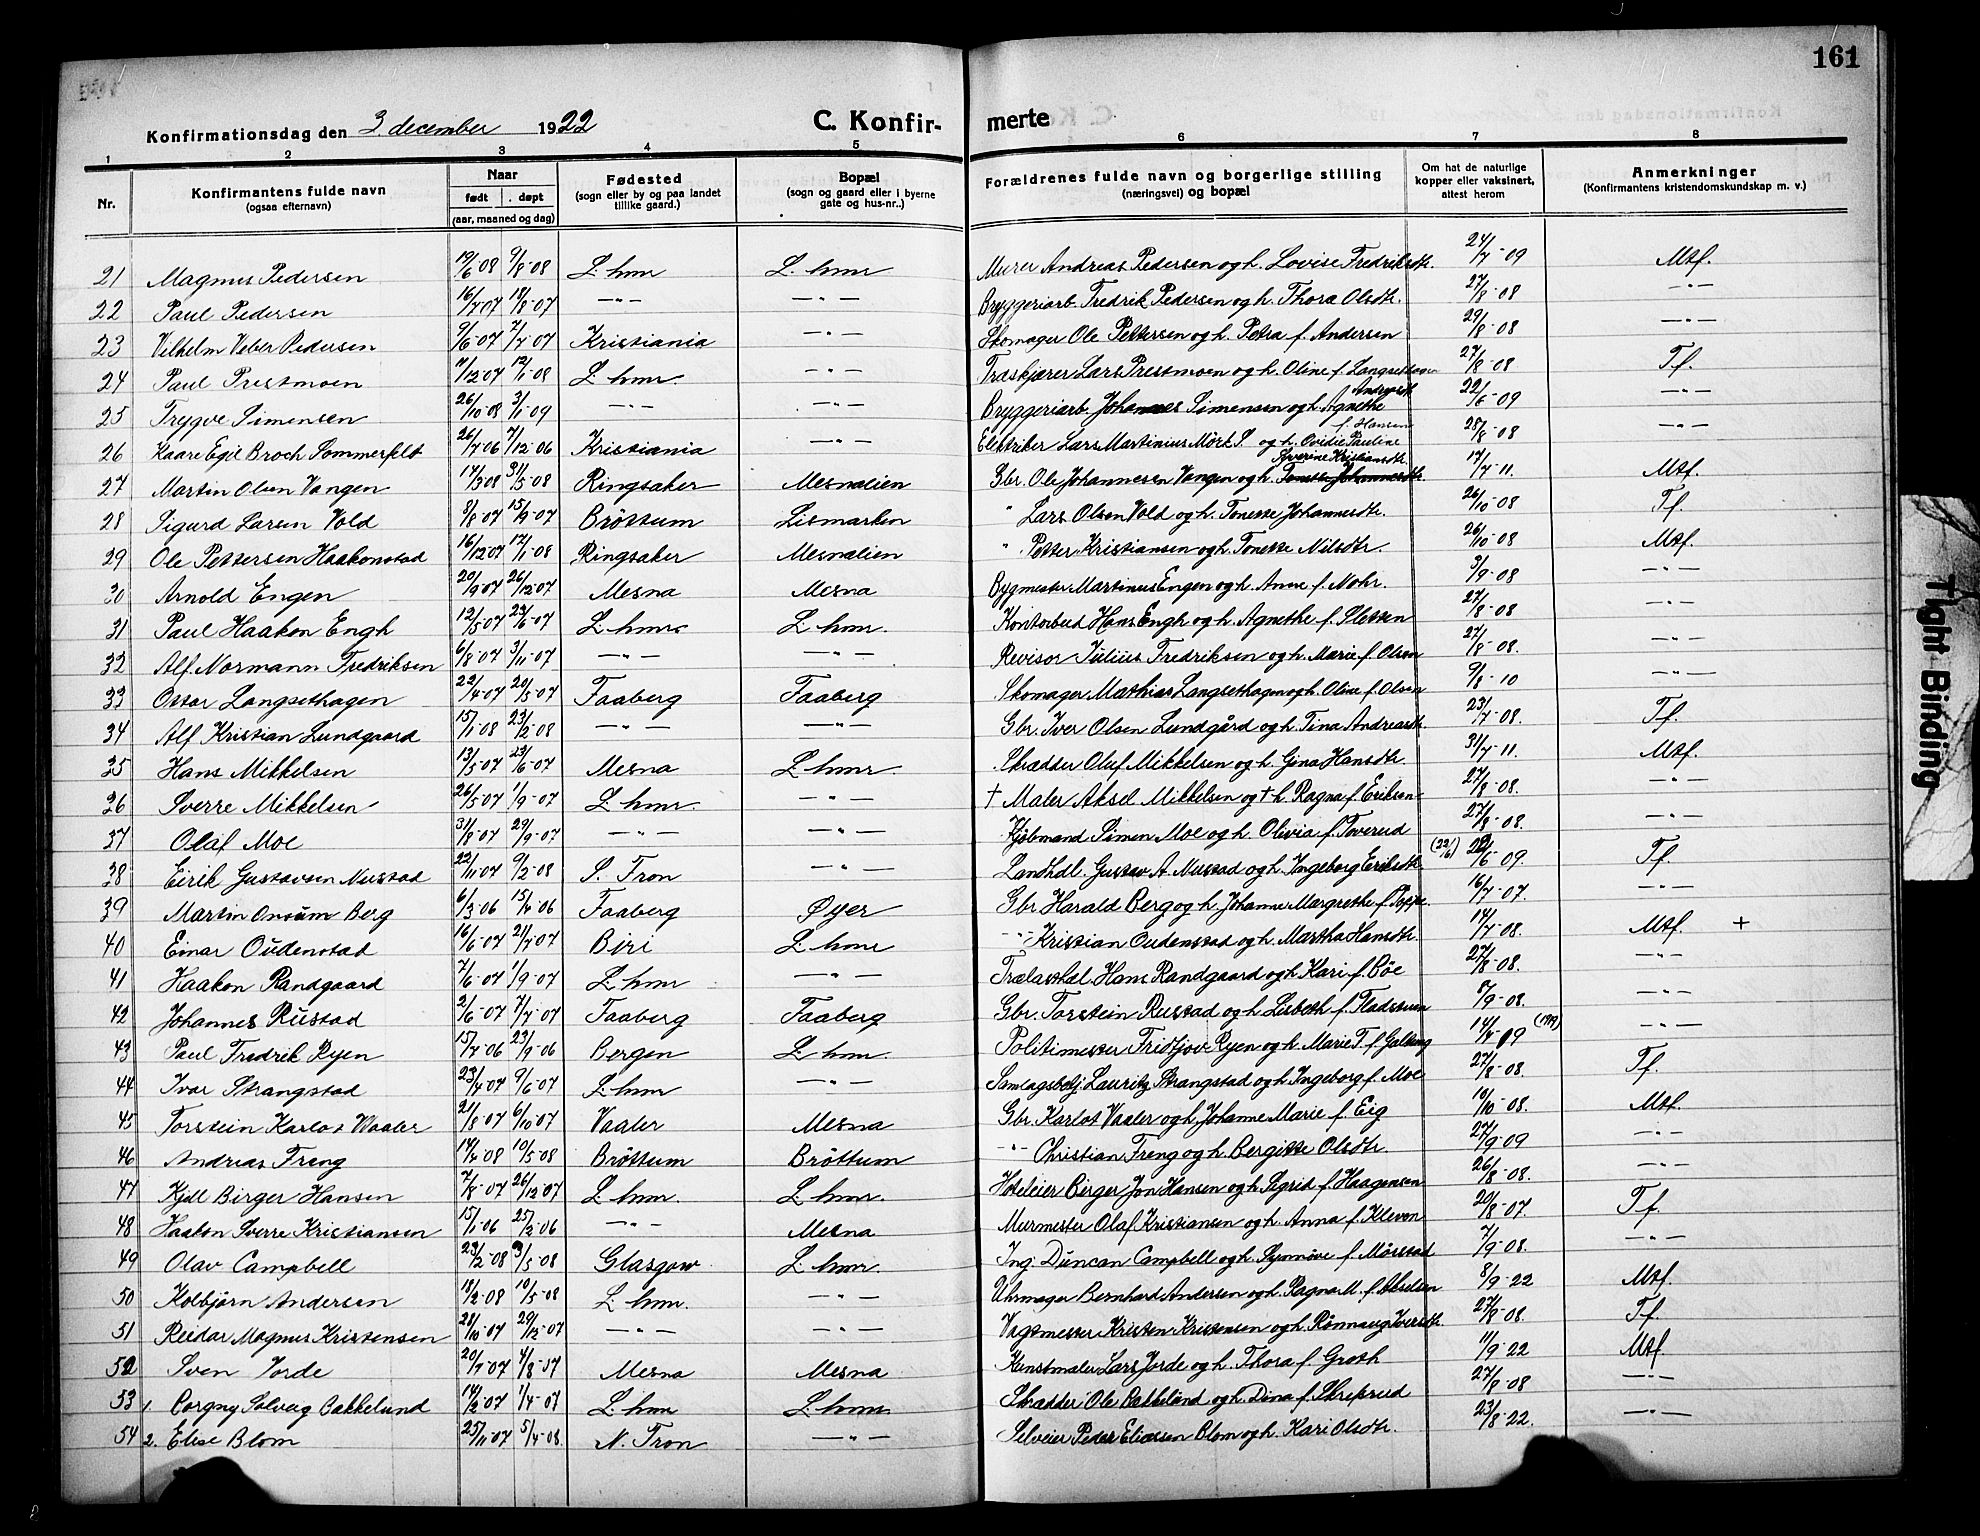 161
Konfirmationsdag den 3 december 1922
C. Konfir-
merte
1 2 3 4 5 6 7 8
Nr.
Konfirmantens fulde navn
(ogsaa efternavn)
Naar
født døpt
(aar, maaned og dag)
Fødested
(sogn eller by og paa landet
tillike gaard.)
Bopæl
(sogn og gaard eller i byerne
gate og hus-nr..)
Forældrenes fulde navn og borgerlige stilling
(næringsvei) og bopæl
Om hat de naturlige
kopper eller vaksinert,
attest herom
Anmerkninger
(Konfirmantens kristendomskundskap m. v.)
21 Magnus Pedersen 19/6 08 9/8-08 L. hmr L. hmr Murer Andreas Pedersen og h. Lovise Fredriksdtr. 24/7-09 Mtf.
22 Paul Pedersen 16/7 07 18/8-07 —"— —"— Bryggeriarb. Fredrik Pedersen og h. Thora Olsdtr. 27/8-08 —"—
23 Vilhelm Veber Pedersen 9/6-07 2/7-07 Kristiania —"— Skomager Ole Pettersen og h. Petra f. Andersen 29/8-08 —"—
24 Paul Prestmoen 7/12 07 12/1-08 L. hmr. —"— Træskjærer Lars Prestmoen og h. Oline f. Langsethagen 27/8-08 Tf.
25 Trygve Simensen 26/10-08 3/1-09 —"— —"— Bryggeriarb. Johannes Simensen og h. Agnethe Andersdt 22/6-09 —"—
26 Kaare Egil Broch Sommerfelt 26/7 06 7/12 06 Kristiania —"— Elektriker Lars Martinius Mörk S. og h. Ovidie Pauline f. Hansen 28/8-08
27 Martin Olsen Vangen 17/3 08 31/5-08 Ringsaker Mesnalien Gbr. Ole Johannesen Vangen og h. Severine Kristiansdtr. 17/7-11. Mtf.
28 Sigurd Larsen Vold 8/8-07 15/9-07 Bröttum Lismarken " Lars Olsen Vold og h. Tonette Johannesdtr. 26/10-08 Tf.
29 Ole Pettersen Haakonstad 16/12 07 12/1-08 Ringsaker Mesnalien " Petter Kristiansen og h. Tonette Nilsdtr. 26/10-08 Mtf.
30 Arnold Engen 20/9 07 26/12 07 Mesna Mesna Bygmester Martinus Engen og h. Anne f. Mohr. 3/9-08 —"—
31 Paul Haakon Engh 12/5-07 23/6-07 L. hmr L. hmr. Kontorbud Hans Engh og h. Agnethe f. Sletten 27/8-08 —"—
32 Alf Normann Fredriksen 6/8-07 3/11-07 —"— —"— Revisor Julius Fredriksen og h. Marie f. Olsen 27/8-08. —"—
33 Ottar Langsethagen 22/4-07 20/5-07 Faaberg Faaberg Skomager Mathias Langsethagen og h. Oline f. Olsen 9/8-10 —"—
34 Alf Kristian Lundgaard 15/1-08 23/2-08 —"— —"— Gbr. Iver Olsen Lundgård og h. Tina Andreasdtr. 23/7-08. Tf.
35 Hans Mikkelsen 13/5-07 23/6-07 Mesna L. hmr. Skrædder Oluf Mikkelsen og h. Gina Hansdtr. 31/7-11. Mtf.
36 Sverre Mikkelsen 26/5-07 1/9-07 L. hmr. —"— † Maler Aksel Mikkelsen og † h. Ragna f. Eriksen 27/8-08. —"—
37 Olaf Moe 31/8-07 29/9-07 —"— —"— Kjöbmand Simen Moe og h. Olivia f. Tverud 27/8-08. —"—
38 Eirik Gustavsen Mustad 22/11 07 9/2-08 S. Fron —"— Landhdl. Gustav A. Mustad og h. Ingeborg Eriksdtr. (22/6) 22/6-09. Tf.
39 Martin Onsum Berg 6/3-06 15/4-06 Faaberg Øyer Gbr Harald Berg og h. Johanne Margrethe f. 16/7-07. —"—
40 Einar Oudenstad 16/6-07 21/7-07 Biri L. hmr —"— Kristian Oudenstad og h. Martha Hansdtr. 14/7-08. Mtf. +
41 Haakon Randgaard 7/6-07 1/9-07 L. hmr —"— Trælasthdl. Hans Randgaard og h. Kari f. Böe 27/8-08. —"—
42 Johannes Rustad 2/6-07 7/7-07 Faaberg Faaberg Gbr. Torstein Rustad og h. Lisbeth f. Fladstuen 8/9-08. —"—
43 Paul Fredrik Ryen 15/7-06 23/9-06 Bergen L. hmr. Politimester Fridtjov Ryen og h. Marie T. f. Galtung —"—
44 Ivar Strangstad 23/4 07 9/6-07 L. hmr —"— Samlagsbetj. Lauritz Strangstad og h. Ingeborg f. Moe 27/8-08. Tf.
45 Torstein Karlot Waaler 21/8 07 6/10 07 Vaaler Mesna Gbr. Karlot Vaaler og h. Johanne Marie f. Eig 10/10-08. Mtf.
46 Andreas Freng 14/4 08 10/5-08 Bröttum Bröttum —"— Christian Freng og h. Bergitte Olsdtr. 27/9-09 —"—
47 Kjell Birger Hansen 7/8-07 26/12 07 L. hmr. L. hmr. Hoteleier Birger Jon Hansen og h. Sigrid f. Haagensen 26/8-08. —"—
48 Haakon Sverre Kristiansen 15/1-06 25/2-06 —"— Mesna Murmester Olaf Kristiansen og h. Anna f. Kleven 20/8-07. Tf.
49 Olav Campbell 23/2-08 3/5-08 Glasgow L. hmr. Ing. Duncan Campbell og h. Synnöve f. Mörstad 7/9-08. —"—
50 Kolbjörn Andersen 18/2-08 10/5-08 L. hmr. —"— Uhrmager Bernhard Andersen og h. Ragna M. f. Akselsen 8/9-22 Mtf.
51 Reidar Magnus Kristensen 28/10-07 29/12-07 —"— —"— Vagtmester Kristen Kristensen og h. Rönnaug Iversdtr. 27/8-08. Tf.
52 Sven Jorde 20/7-07 4/8-07 Mesna Mesna Kunstmaler Lars Jorde og h. Thora f. Groth 11/9-22 Mtf.
53 1. Borgny Solveig Bakkelund 14/2-07 1/4-07 L. hmr L. hmr. Skrædder Ole Bakkelund og h. Dina f. Skreprud 27/8-08 —"—
54 2. Elise Blom 25/11-07 5/4-08. N. Fron —"— Selveier Peder Eliassen Blom og h. Kari Olsdtr. 23/8-22. —"—
Tight Binding